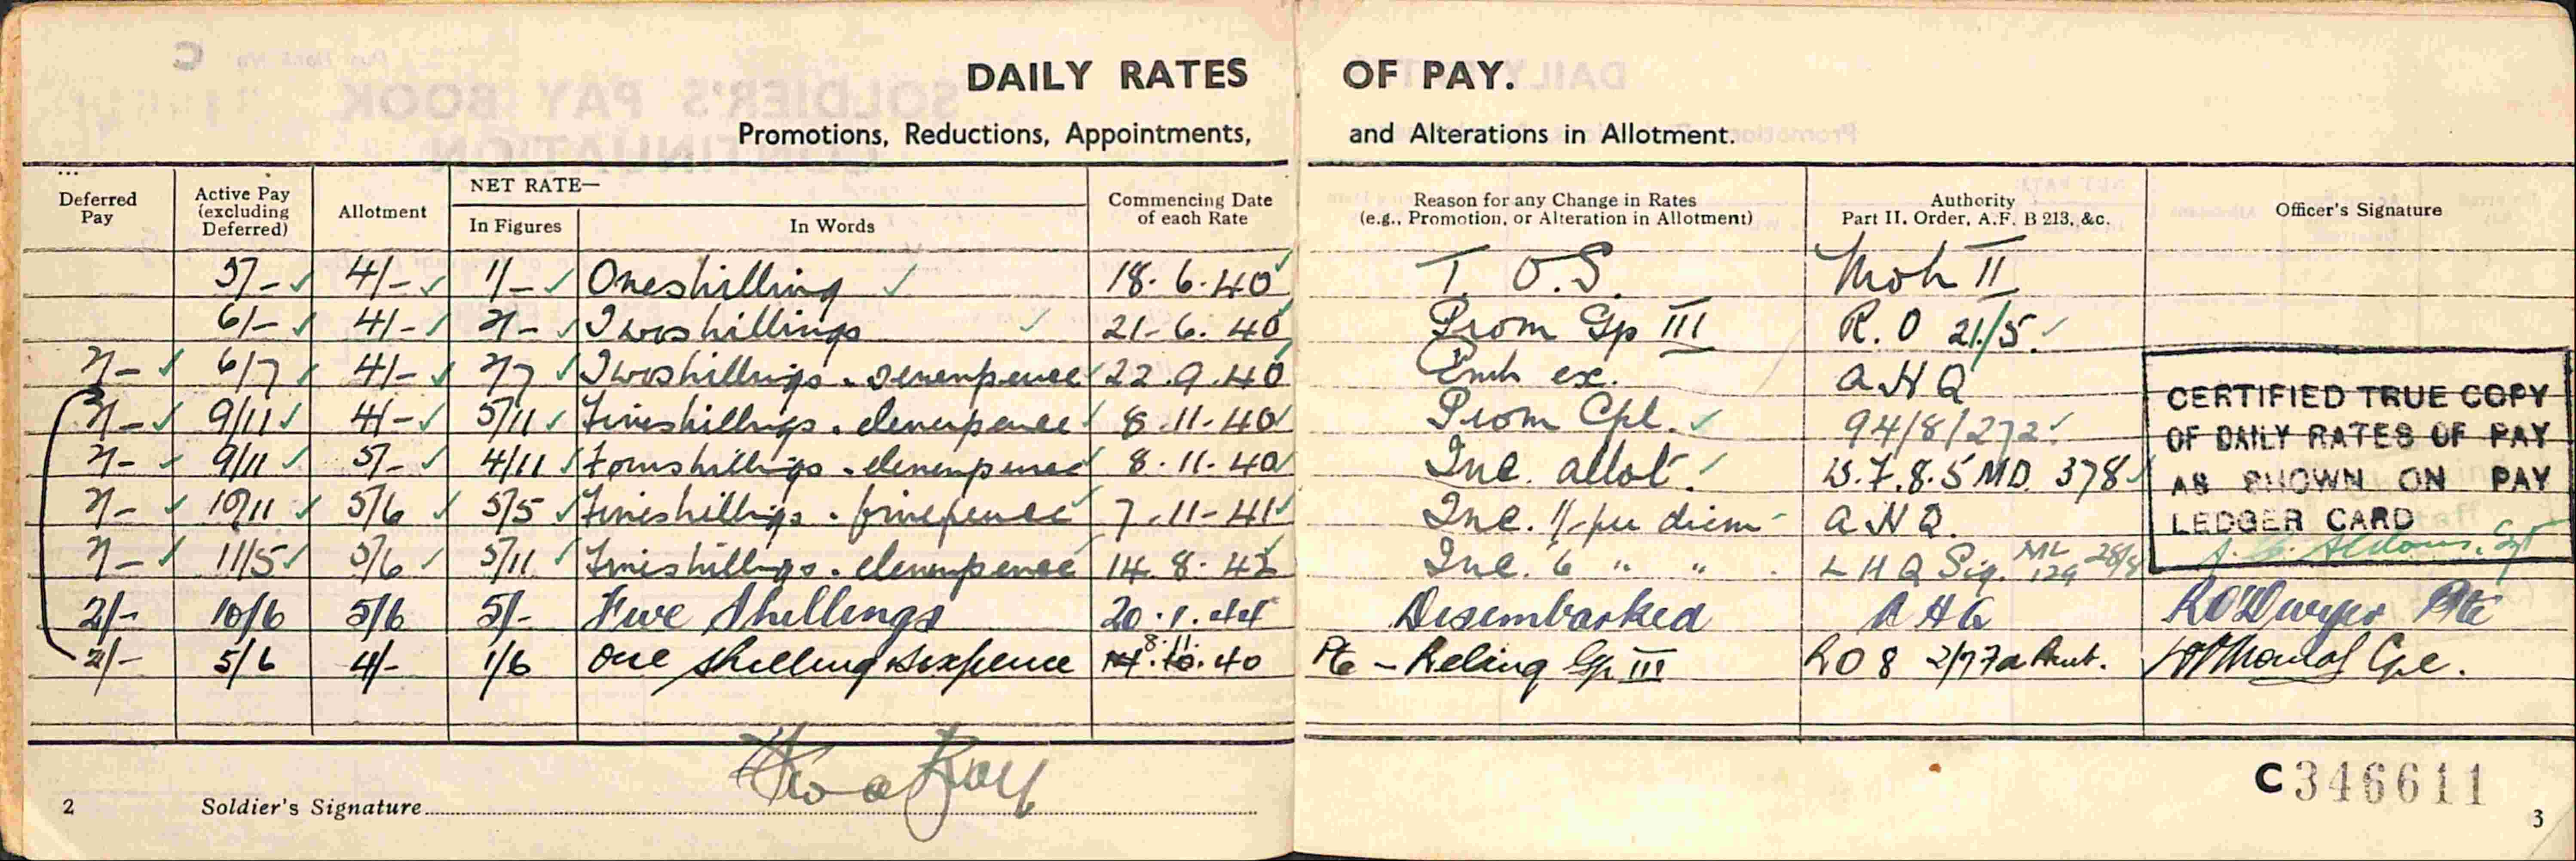 DAILY RATES OF PAY.
Promotions, Reductions, Appointments, and Alterations in Allotment.
Deferred Pay | Active Pay (excluding Deferred) | Allotment | NET RATE— In Figures | In Words | Commencing Date of each Rate | Reason for any Change in Rates (e.g., Promotion, or Alteration in Allotment) | Authority Part II. Order, A.F. B 213, &c. | Officer's Signature
5/- 4/- 1/- One shilling 18.6.40 T.O.S. Mob II
6/- 4/- 2/- Two shillings 21-6.40 Prom Gp III R.O 21/5.
2/- 6/7 4/- 2/7 Two shillings - sevenpence 22.9.40 Emb ex. A H Q
2/- 9/11 4/- 5/11 Five shillings - elevenpence 8.11.40 Prom Cpl. 94/8/272
2/- 9/11 5/- 4/11 Four shillings - elevenpence 8.11.40 Inc. allot. 378
2/- 10/11 5/6 5/5 Five shillings - fivepence 7.11-41 Inc. 1/- per diem A H Q.
2/- 11/5 5/6 5/11 Five shillings - elevenpence 14.8.42 Inc. 6 " " L H Q Sig. 124 28/8
2/- 10/6 5/6 5/- Five Shillings 20.1.44 Disembarked A H Q R O'Dwyer Pte
2/- 5/6 4/- 1/6 One Shilling & Sixpence 8.11. 14.10.40 Pte - Relinq Gp III R O 8
CERTIFIED TRUE COPY
OF DAILY RATES OF PAY
AS SHOWN ON PAY
LEDGER CARD
2 Soldier's Signature
C346611
3